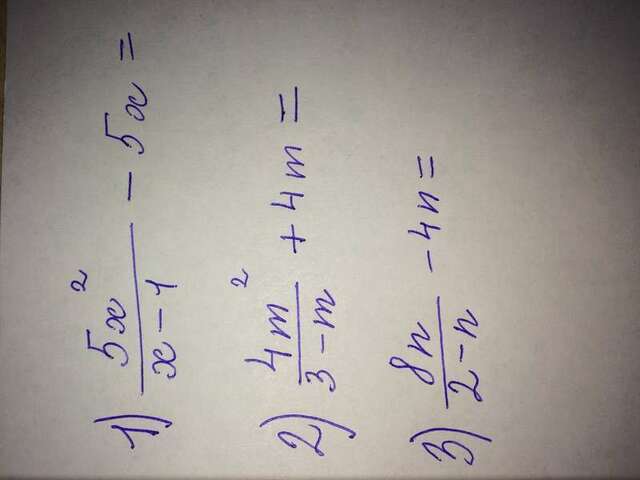 1) 5x²/(x-1) - 5x =
2) 4m²/(3-m) + 4m =
3) 8n/(2-n) - 4n =